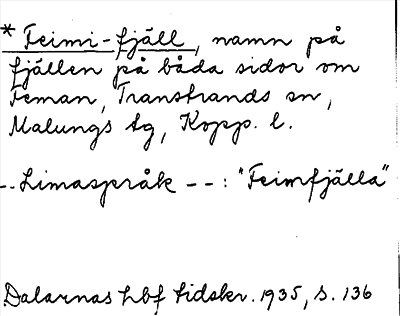 * Feimi-fjäll, namn på
fjällen på båda sidor om
Feman, Transtrands sn,
Malungs tg, Kopp. l.
-- Limaspråk -- : "Feimfjälla"
Dalarnas hbf tidskr. 1935, s. 136